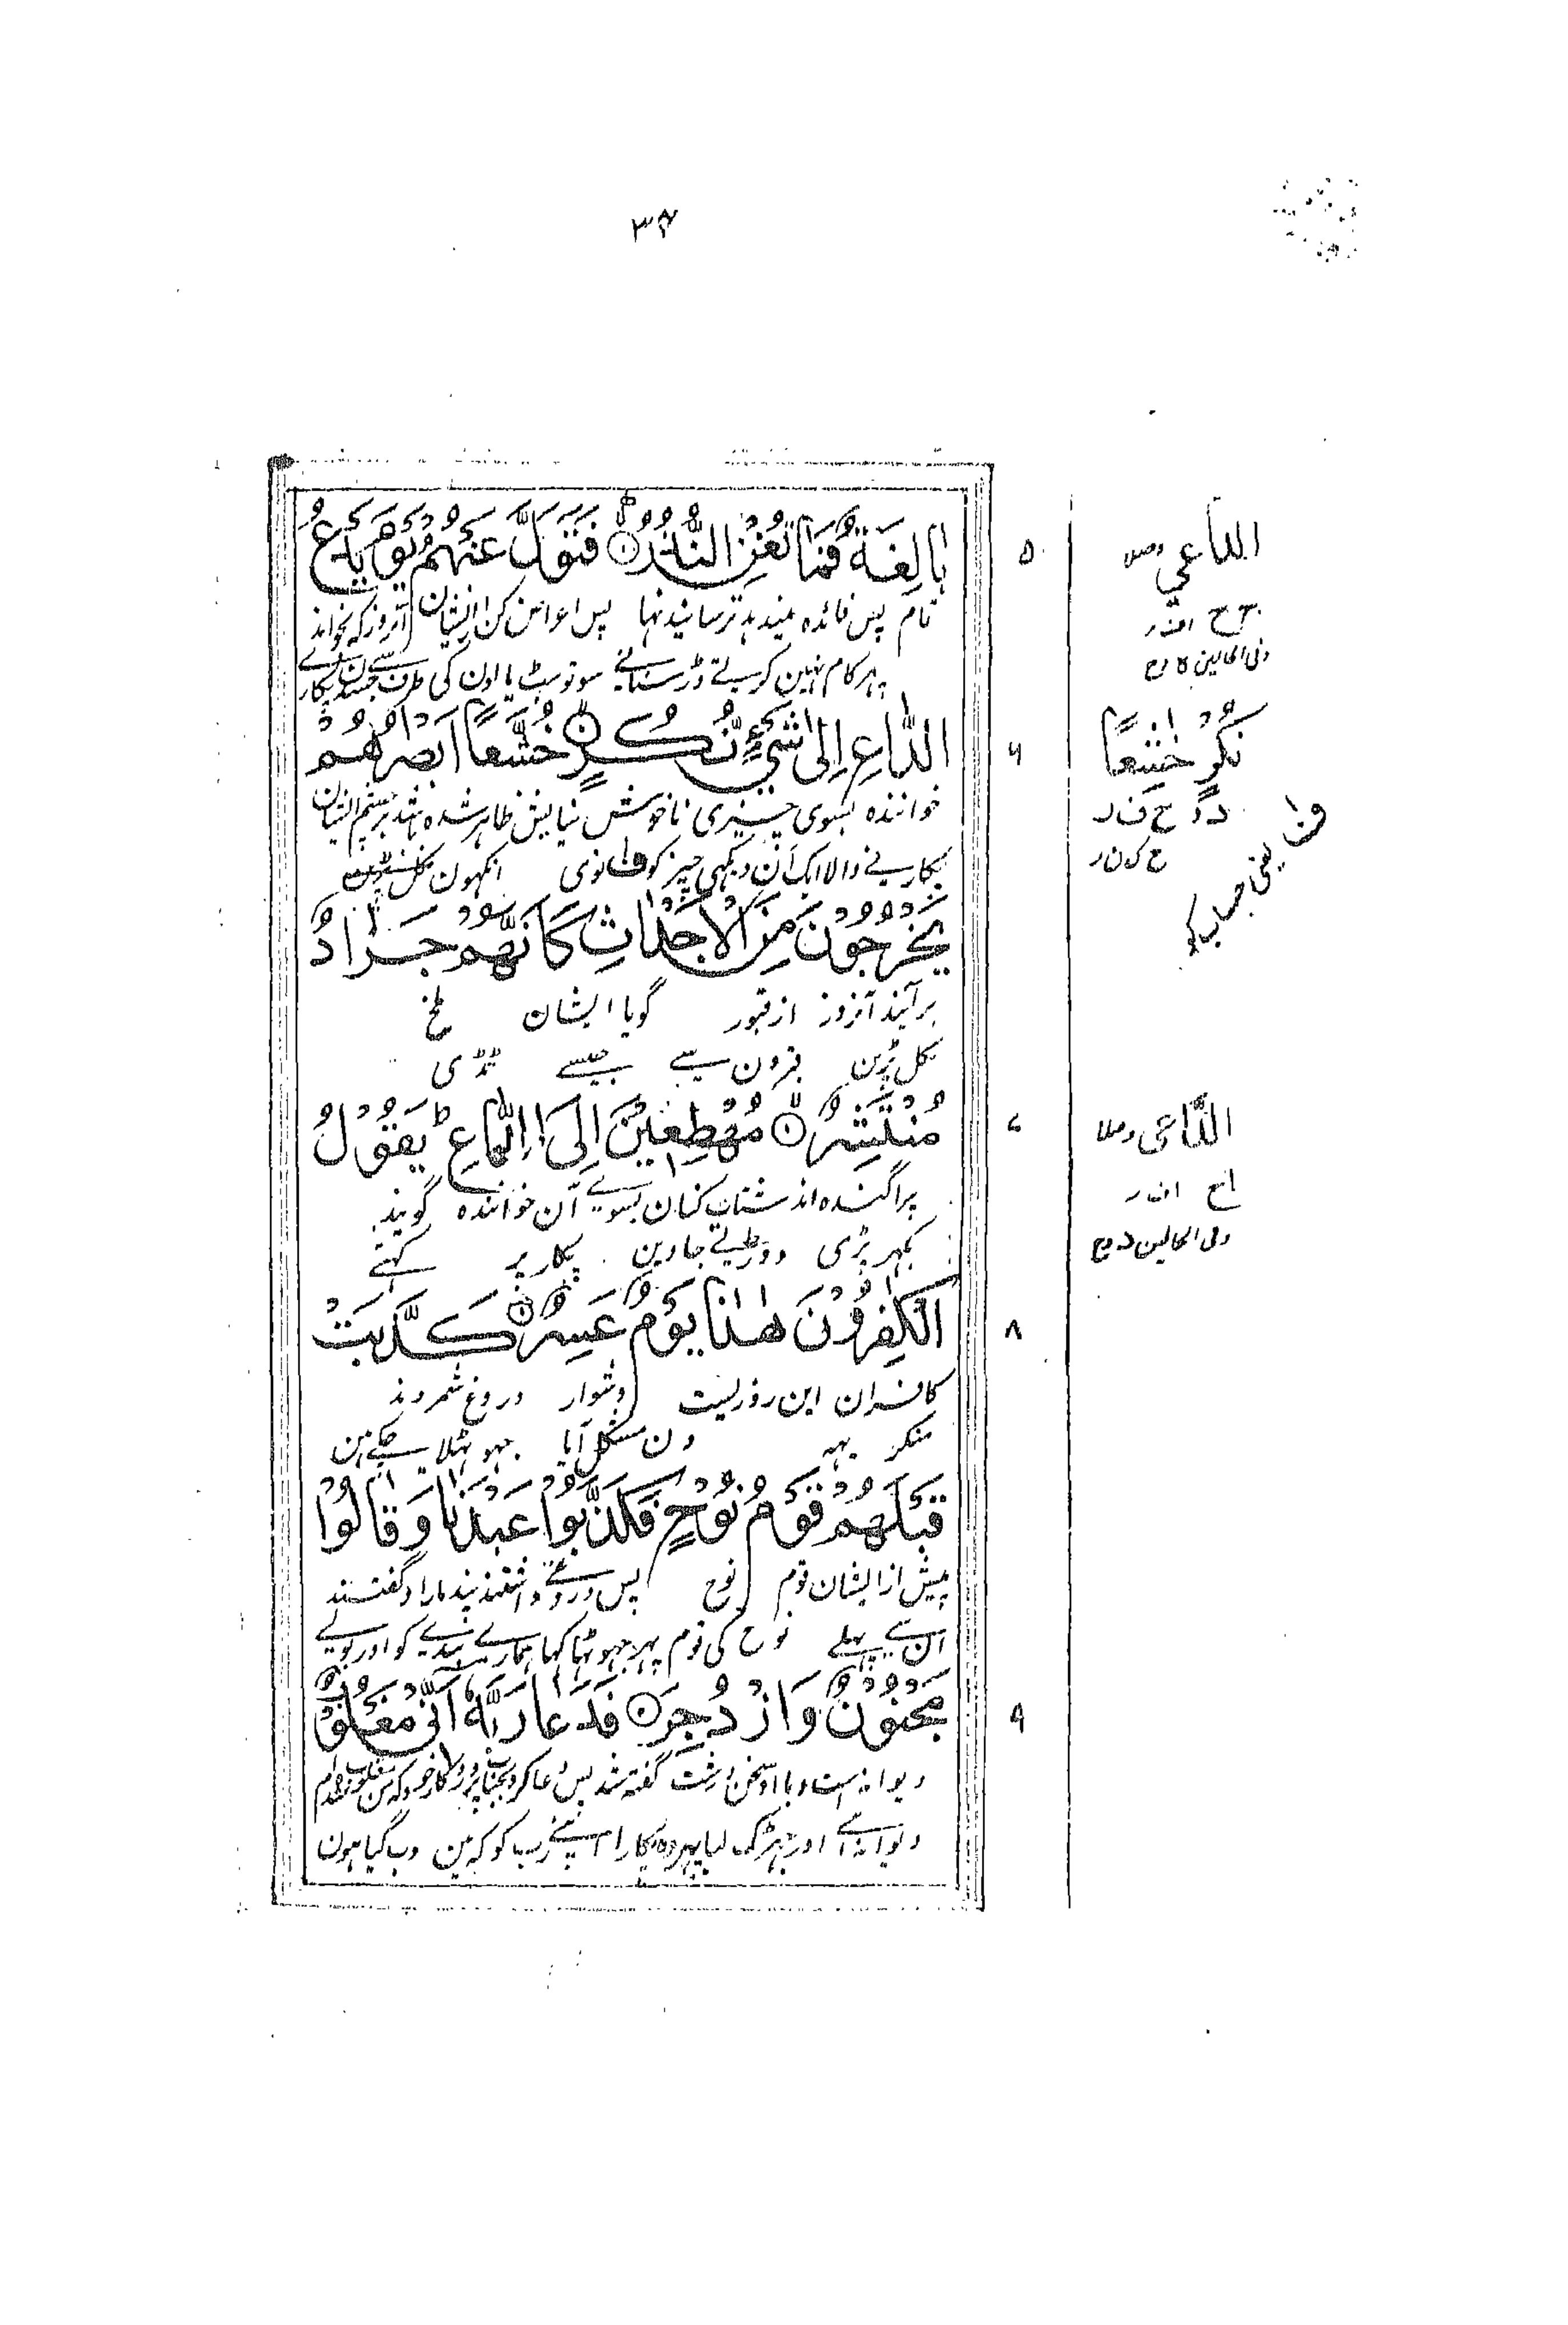 ٣٤
بَالِغَةٌ فَمَا تُغْنِ النُّذُرُ فَتَوَلَّ عَنْهُمْ يَوْمَ يَدْعُ
۵
تام پس فائده نمیدهد ترسانیدنها پس اعراض کن از ایشان آنروز که بخواند
پهر کام نہین کرتے ڈر سنانے سو تو ہٹ یا اون کی طرف سے جس دن پکارے
الدَّاعِ إِلَىٰ شَيْءٍ نُّكُرٍ خُشَّعًا أَبْصَٰرُهُمْ
۶
خواننده بسوی چیزی ناخوش نیایش ظاهر شده باشد بر چشم ایشان
پکارنے والا ایک اَن دیکھی چیز کو ف نوی انکہون نکل پڑین
يَخْرُجُونَ مِنَ الْأَجْدَاثِ كَأَنَّهُمْ جَرَادٌ
برآیند آنروز از قبور گویا ایشان ملخ
نکل پڑین قبرون سے جیسے ٹڈی
مُّنتَشِرٌ مُّهْطِعِينَ إِلَى الدَّاعِ يَقُولُ
۷
پراگنده اند شتاب کنان بسوے آن خواننده گویند
بکہر پڑی دوڑتے جاوین پکار پر کہتے
الْكَٰفِرُونَ هَٰذَا يَوْمٌ عَسِرٌ كَذَّبَتْ
۸
کافران این روزیست دشوار دروغ شمردند
منکر یہہ دن مشکل آیا جہوٹہلا چکے ہین
قَبْلَهُمْ قَوْمُ نُوحٍ فَكَذَّبُوا عَبْدَنَا وَقَالُوا
پیش از ایشان قوم نوح پس دروغے داشتند بنده مارا و گفتند
ان سے پہلے نوح کی قوم پہر جہوٹہا کہا ہمارے بندے کو اور بولے
مَجْنُونٌ وَازْدُجِرَ فَدَعَا رَبَّهُ أَنِّي مَغْلُوبٌ
۹
دیوانه است و با او سخن درشت گفته شد پس دعا کرد بجناب پروردگار خود که من مغلوب شده ام
دیوانہ ہے اور جہڑک لیا پہر وہ پکارا اپنے رب کو کہ مین دب گیا ہون
الداعي وصلا
ج ح
نكر خشعا
ف یعنی حساب کو
الداعى وصلا